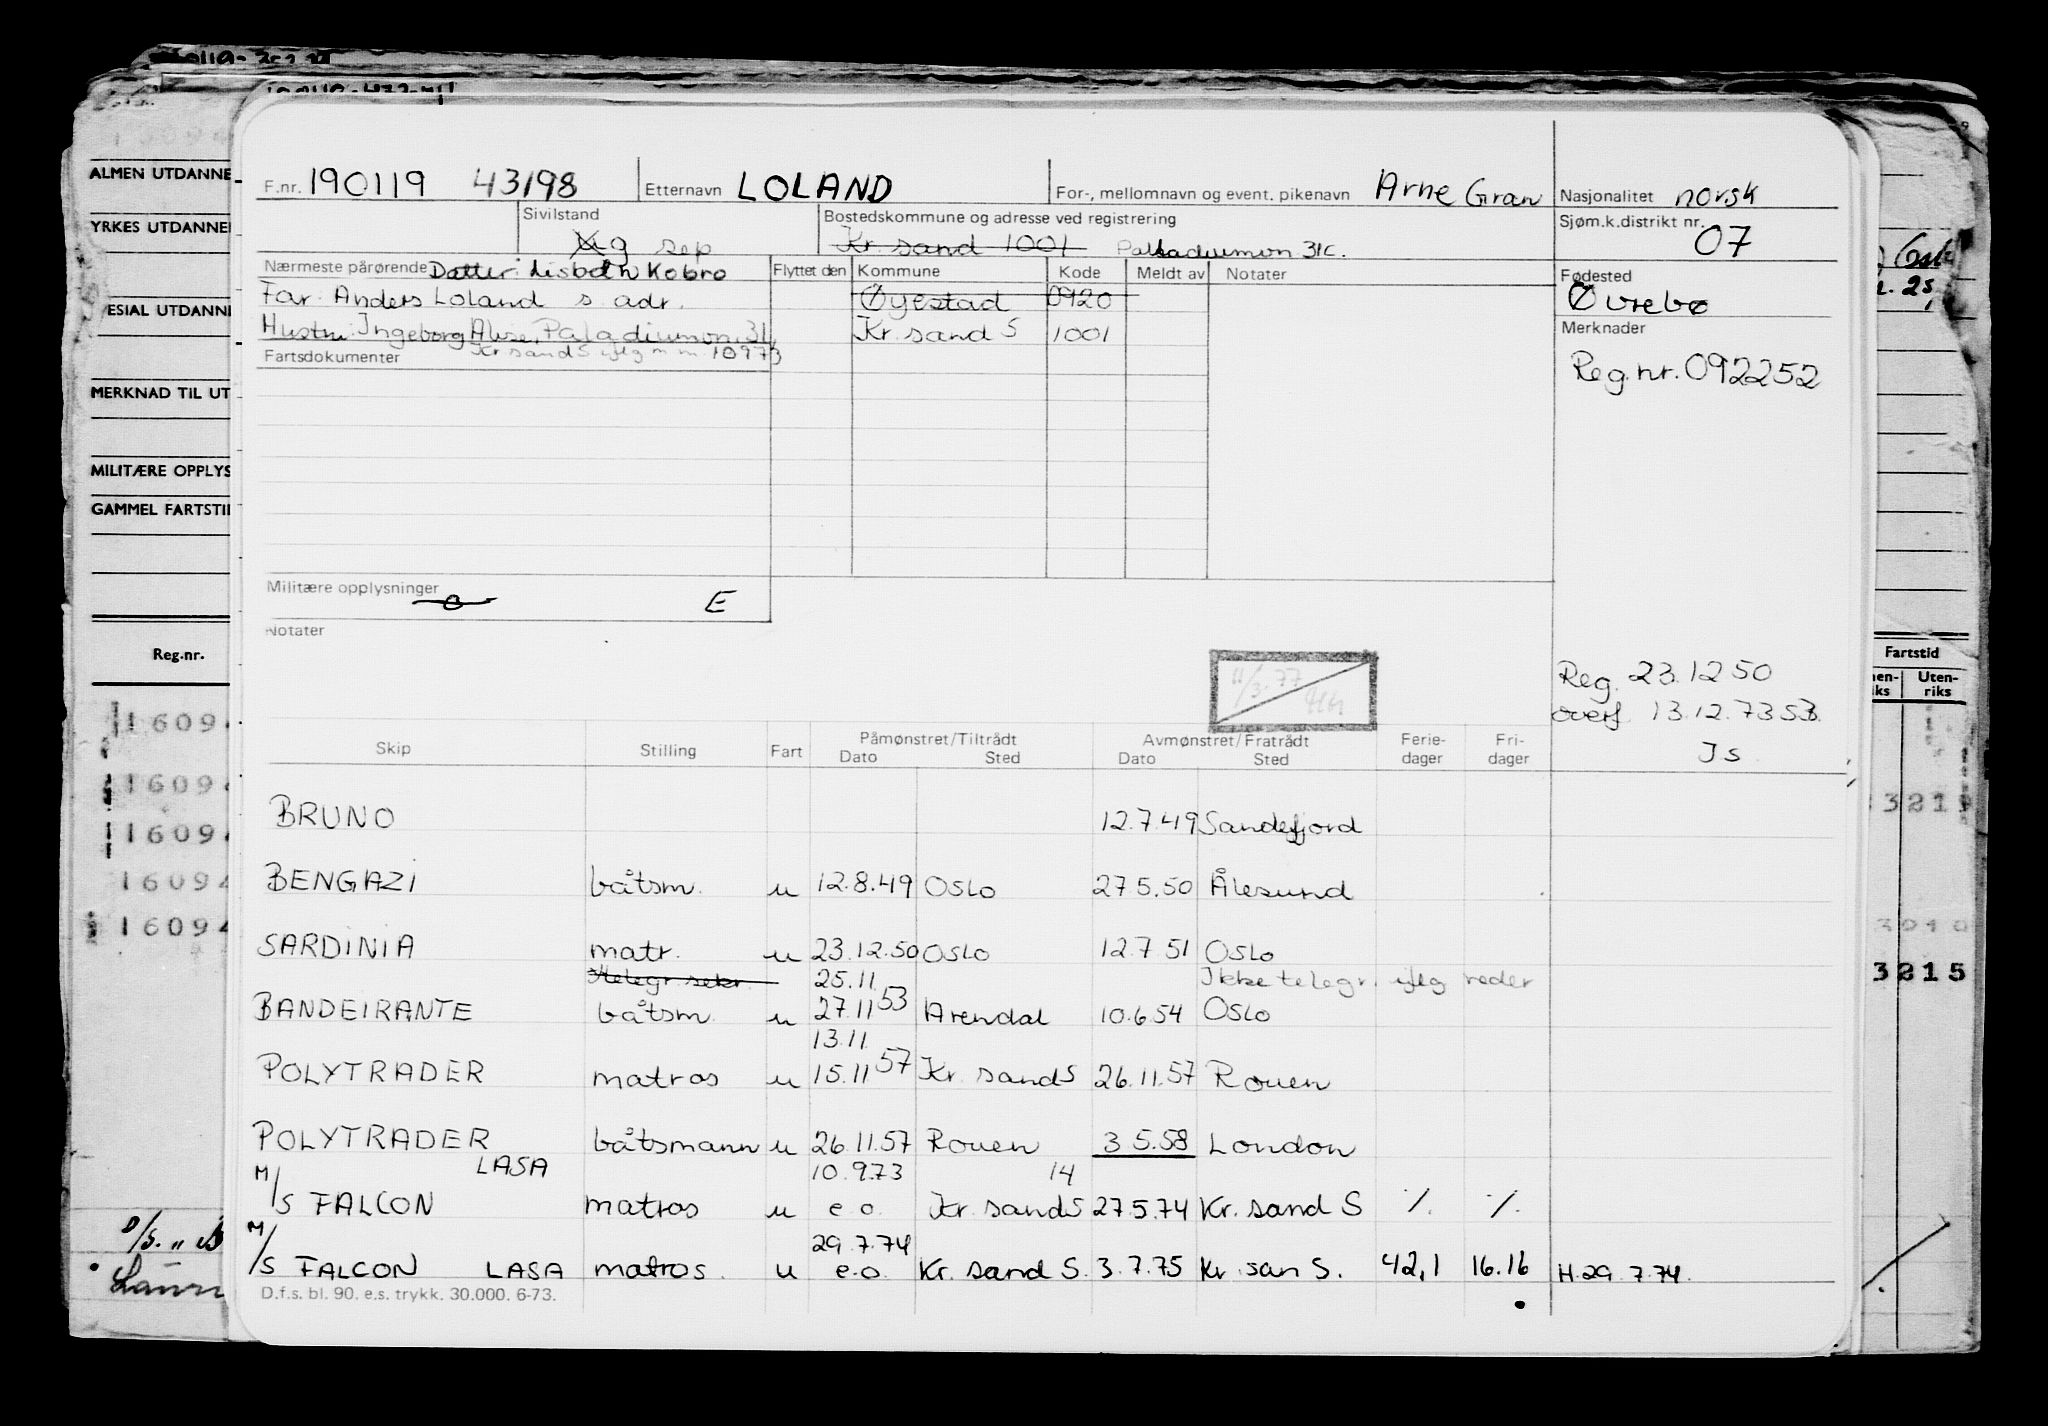 0119-352 14
ALMEN UTDANNE
YRKES UTDANNE
ESIAL UTDANN
MERKNAD TIL UT
MILITÆRE OPPLYS
GAMMEL FARTSTI
Reg.nr.
16094
16094
16094
16094
16094
D/S.
F.nr. 190119 43198 Etternavn LOLAND For-, mellomnavn og event. pikenavn Arne Gran Nasjonalitet norsk
Sivilstand g sep Bostedskommune og adresse ved registrering Kr. sand 1001 Palladiumon 31c. Sjøm.k.distrikt nr. 07
Nærmeste pårørende Datter: Lisbeth Kobro Flyttet den Kommune Kode Meldt av Notater Fødested
Far: Anders Loland s. adr. Øyestad 0920 Øvrebø
Hustru: Ingeborg Alvse, Paladiumon 31 Kr. sand S 1001 Merknader
Fartsdokumenter Kr sand S iflg m.m. 10973
Reg.nr. 092252
Militære opplysninger E
Notater
11/3.77
Reg. 23.12 50
overf. 13.12.73 SB.
JS
Skip Stilling Fart Påmønstret/Tiltrådt Avmønstret/Fratrådt Ferie- Fri-
Dato Sted Dato Sted dager dager
BRUNO 12.7.49 Sandefjord
BENGAZI båtsm. u 12.8.49 Oslo 27.5.50 Ålesund
SARDINIA matr. u 23.12.50 Oslo 12.7 51 Oslo
telegr. sekr. 25.11 Ikke telegr. iflg reder
BANDEIRANTE båtsm. u 27.11 53 Arendal 10.6.54 Oslo
13.11
POLYTRADER matros u 15.11 57 Kr. sand S 26.11.57 Rouen
POLYTRADER båtsmann u 26.11.57 Rouen 3 5.58 London
LASA 10.9.73 14
M/S FALCON matros u e.o. Kr. sand S 27.5.74 Kr. sand S ./. ./.
29.7.74
M/S FALCON LASA matros. u e.o. Kr. sand S. 3.7.75 Kr. san S. 42,1 16.16 H.29.7.74.
D.f.s. bl. 90. e.s. trykk. 30.000. 6-73.
Fartstid
Uten-
riks
3215
3215